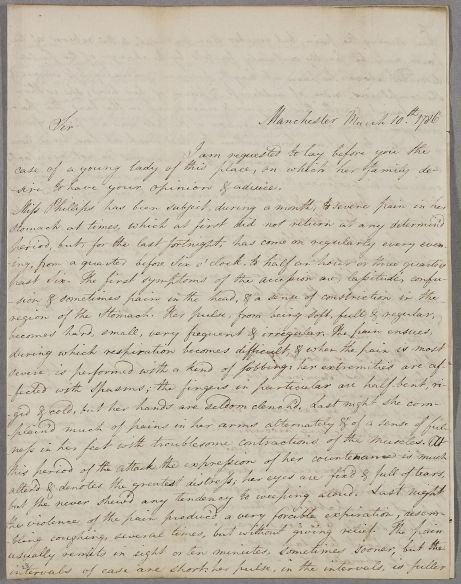 Manchester March 10th. 1786
Sir
I am requested to lay before you the
case of a young lady of this place, on which her family de-
-sire to have your opinion & advice.
Miss Phillips has been subject, during a month, to severe pain in her
stomach at times, which at first did not return at any determin'd
period, but, for the last fortnight, has come on regularly every even-
ing, from a quarter before Six o'clock to half an hour or three quarters
past Six. The first symptoms of the accession are, lassitude, confu-
sion & sometimes pain in the head, & a sense of constriction in the
region of the Stomach. Her pulse, from being soft, full & regular,
becomes hard, small, very frequent & irregular. The pain ensues,
during which respiration becomes difficult, & when the pain is most
severe, is performed with a kind of sobbing; her extremities are af-
fected with spasms; the fingers in particular are half bent, ri-
-gid & cold, but her hands are seldom clench'd. Last night she com-
-plain'd much of pains in her arms alternately & of a sense of ful-
ness in her feet with troublesome contractions of the muscles. At
this period of the attack the expression of her countenance is much
alterd & denotes the greatest distress, her eyes are fix'd & full of tears,
but she never shews any tendency to weeping aloud. Last night
the violence of the pain produc'd a very forcible expiration, resem-
bling coughing, several times, but without giving relief. The pain
usually remits in eight or ten minutes, sometimes sooner, but the
intervals of ease are short; her pulse, in the intervals, is fuller